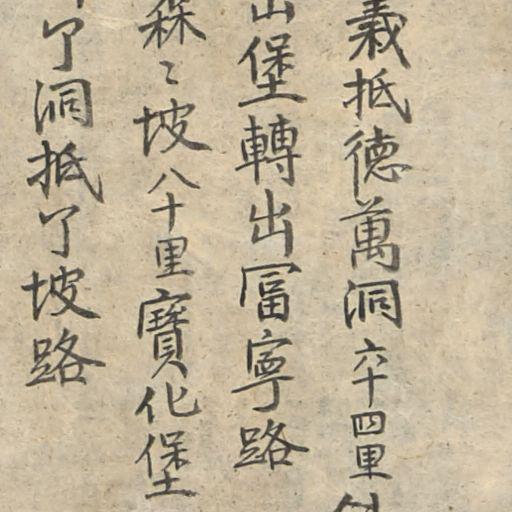 義抵德萬洞六十四里
堡轉出冨寧路
森〻坡八十里寶化堡
了洞抵了坡路